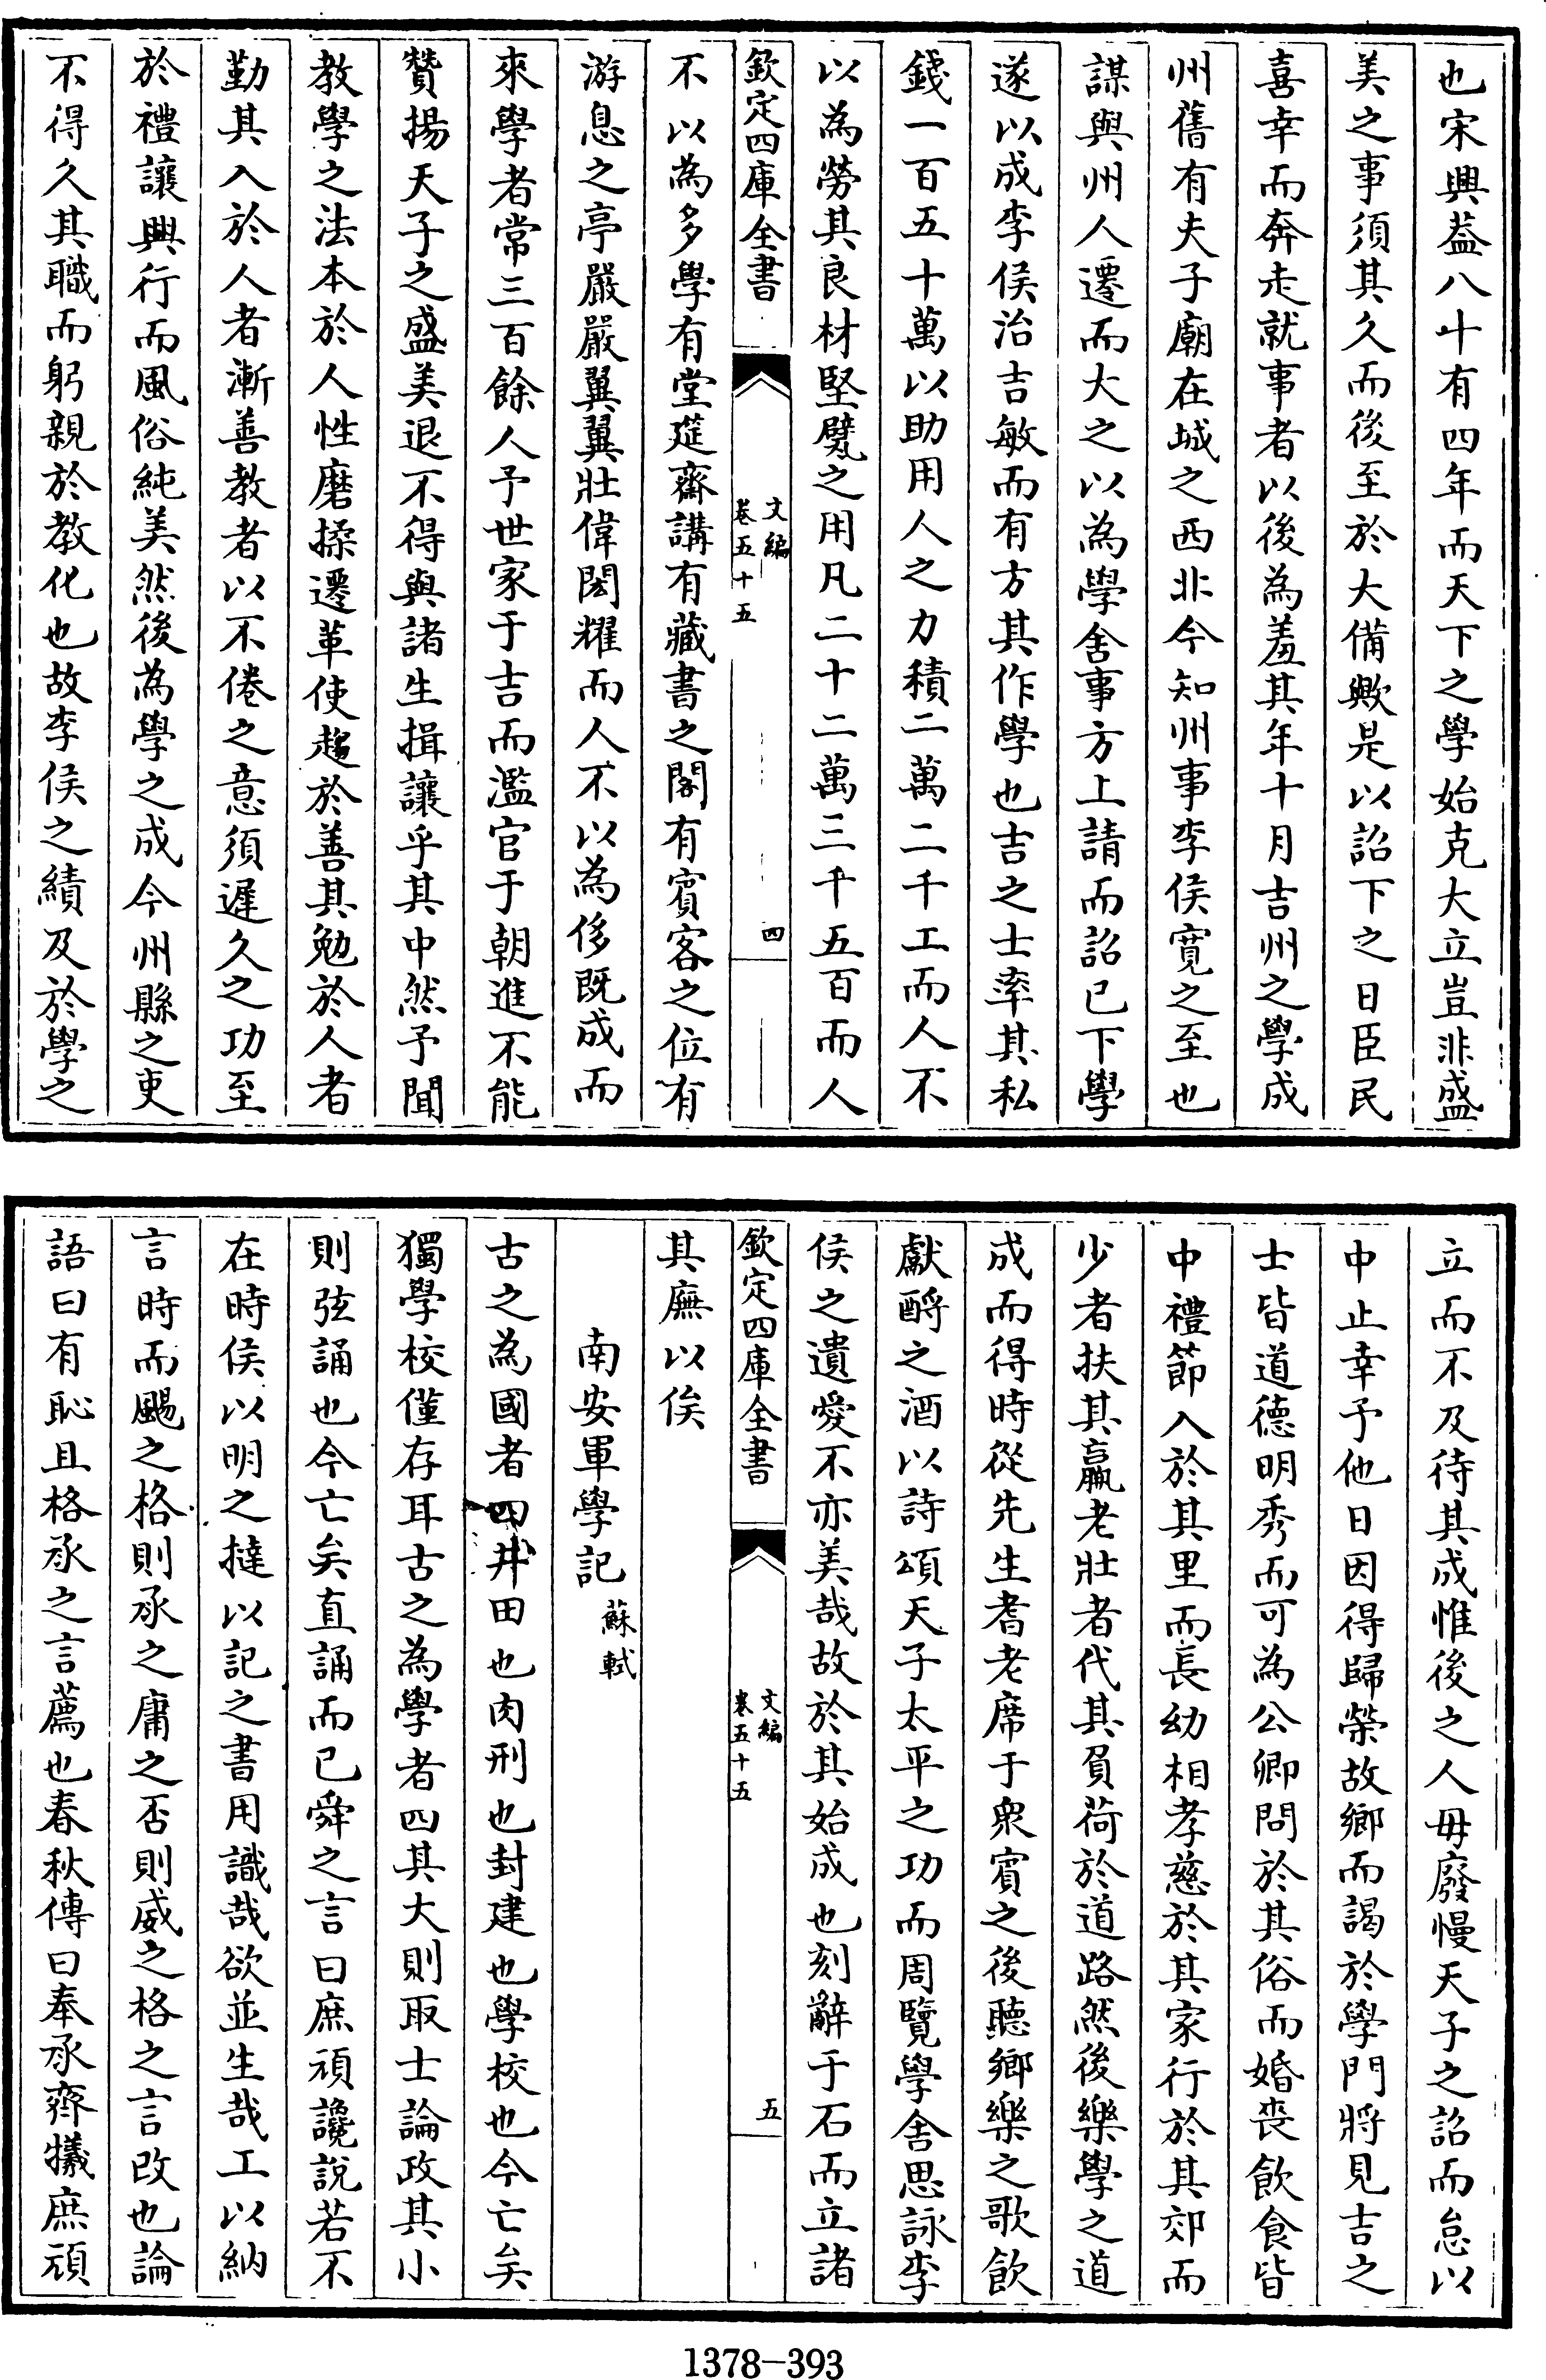 也宋興葢八十有四年而天下之學始克大立豈非盛
美之事須其久而後至於大備歟是以詔下之日臣民
喜幸而奔走就事者以後為羞其年十月吉州之學成
州舊有夫子廟在城之西北今知州事李侯寛之至也
謀與州人遷而大之以為學舍事方上請而詔已下學
遂以成李侯治吉敏而有方其作學也吉之士率其私
錢一百五十萬以助用人之力積二萬二千工而人不
以為勞其良材堅甓之用凡二十二萬三千五百而人
欽定四庫全書
文編
卷五十五
四
不以為多學有堂筵齋講有藏書之閣有賓客之位有
游息之亭嚴嚴翼翼壯偉閎耀而人不以為侈既成而
來學者常三百餘人予世家于吉而濫官于朝進不能
贊揚天子之盛美退不得與諸生揖讓乎其中然予聞
教學之法本於人性磨揉遷革使趨於善其勉於人者
勤其入於人者漸善教者以不倦之意須遲久之功至
於禮讓興行而風俗純美然後為學之成今州縣之吏
不得久其職而躬親於教化也故李侯之績及於學之
立而不及待其成惟後之人毋廢慢天子之詔而怠以
中止幸予他日因得歸榮故鄉而謁於學門將見吉之
士皆道德明秀而可為公卿問於其俗而婚喪飲食皆
中禮節入於其里而長幼相孝慈於其家行於其郊而
少者扶其羸老壯者代其負荷於道路然後樂學之道
成而得時從先生耆老席于衆賓之後聽鄉樂之歌飲
獻酹之酒以詩頌天子太平之功而周覽學舍思詠李
侯之遺愛不亦美哉故於其始成也刻辭于石而立諸
欽定四庫全書
文編
卷五十五
五
其廡以俟
南安軍學記 蘇軾
古之為國者四井田也肉刑也封建也學校也今亡矣
獨學校僅存耳古之為學者四其大則取士論政其小
則弦誦也今亡矣直誦而已舜之言曰庶頑讒說若不
在時侯以明之撻以記之書用識哉欲並生哉工以納
言時而颺之格則承之庸之否則威之格之言改也論
語曰有恥且格承之言薦也春秋傳曰奉承齊犧庶頑
1378-393